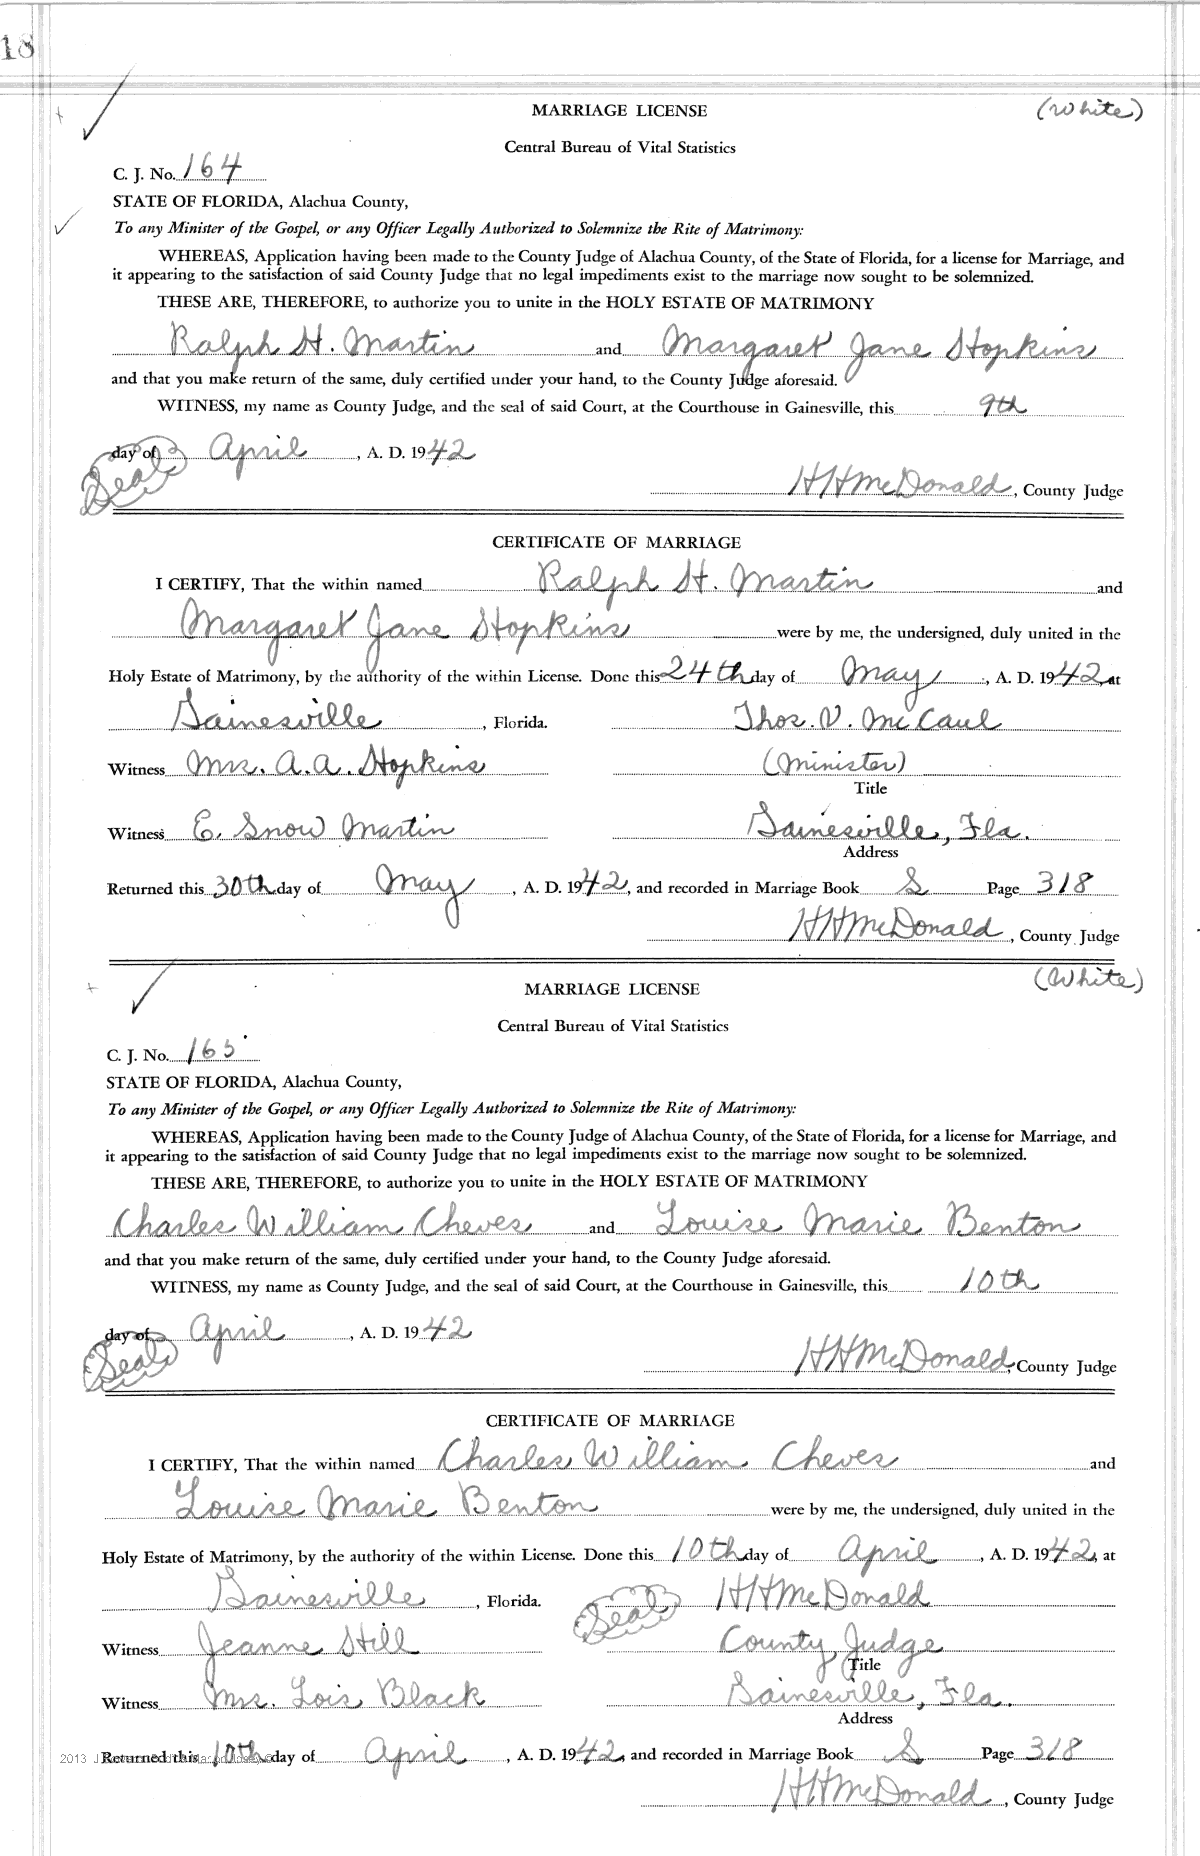 18
MARRIAGE LICENSE (White)
Central Bureau of Vital Statistics
C. J. No. 164
STATE OF FLORIDA, Alachua County,
To any Minister of the Gospel, or any Officer Legally Authorized to Solemnize the Rite of Matrimony:
WHEREAS, Application having been made to the County Judge of Alachua County, of the State of Florida, for a license for Marriage, and
it appearing to the satisfaction of said County Judge that no legal impediments exist to the marriage now sought to be solemnized.
THESE ARE, THEREFORE, to authorize you to unite in the HOLY ESTATE OF MATRIMONY
Ralph H. Martin and Margaret Jane Hopkins
and that you make return of the same, duly certified under your hand, to the County Judge aforesaid.
WITNESS, my name as County Judge, and the seal of said Court, at the Courthouse in Gainesville, this 9th
day of April, A. D. 1942
(Seal) HHMcDonald, County Judge
CERTIFICATE OF MARRIAGE
I CERTIFY, That the within named Ralph H. Martin and
Margaret Jane Hopkins were by me, the undersigned, duly united in the
Holy Estate of Matrimony, by the authority of the within License. Done this 24th day of May, A. D. 1942, at
Gainesville, Florida. Thos. V. McCaul
Witness Mrs. A. A. Hopkins (Minister)
Title
Witness E. Snow Martin Gainesville, Fla.
Address
Returned this 30th day of May, A. D. 1942, and recorded in Marriage Book S Page 318
HHMcDonald, County Judge
(White)
MARRIAGE LICENSE
Central Bureau of Vital Statistics
C. J. No. 165
STATE OF FLORIDA, Alachua County,
To any Minister of the Gospel, or any Officer Legally Authorized to Solemnize the Rite of Matrimony:
WHEREAS, Application having been made to the County Judge of Alachua County, of the State of Florida, for a license for Marriage, and
it appearing to the satisfaction of said County Judge that no legal impediments exist to the marriage now sought to be solemnized.
THESE ARE, THEREFORE, to authorize you to unite in the HOLY ESTATE OF MATRIMONY
Charles William Cheves and Louise Marie Benton
and that you make return of the same, duly certified under your hand, to the County Judge aforesaid.
WITNESS, my name as County Judge, and the seal of said Court, at the Courthouse in Gainesville, this 10th
day of April, A. D. 1942
(Seal) HHMcDonald, County Judge
CERTIFICATE OF MARRIAGE
I CERTIFY, That the within named Charles William Cheves and
Louise Marie Benton were by me, the undersigned, duly united in the
Holy Estate of Matrimony, by the authority of the within License. Done this 10th day of April, A. D. 1942, at
Gainesville, Florida. (Seal) HHMcDonald
Witness Jeanne Still County Judge
Title
Witness Mrs. Lois Black Gainesville, Fla.
Address
2013
Returned this 10th day of April, A. D. 1942, and recorded in Marriage Book S Page 318
HHMcDonald, County Judge